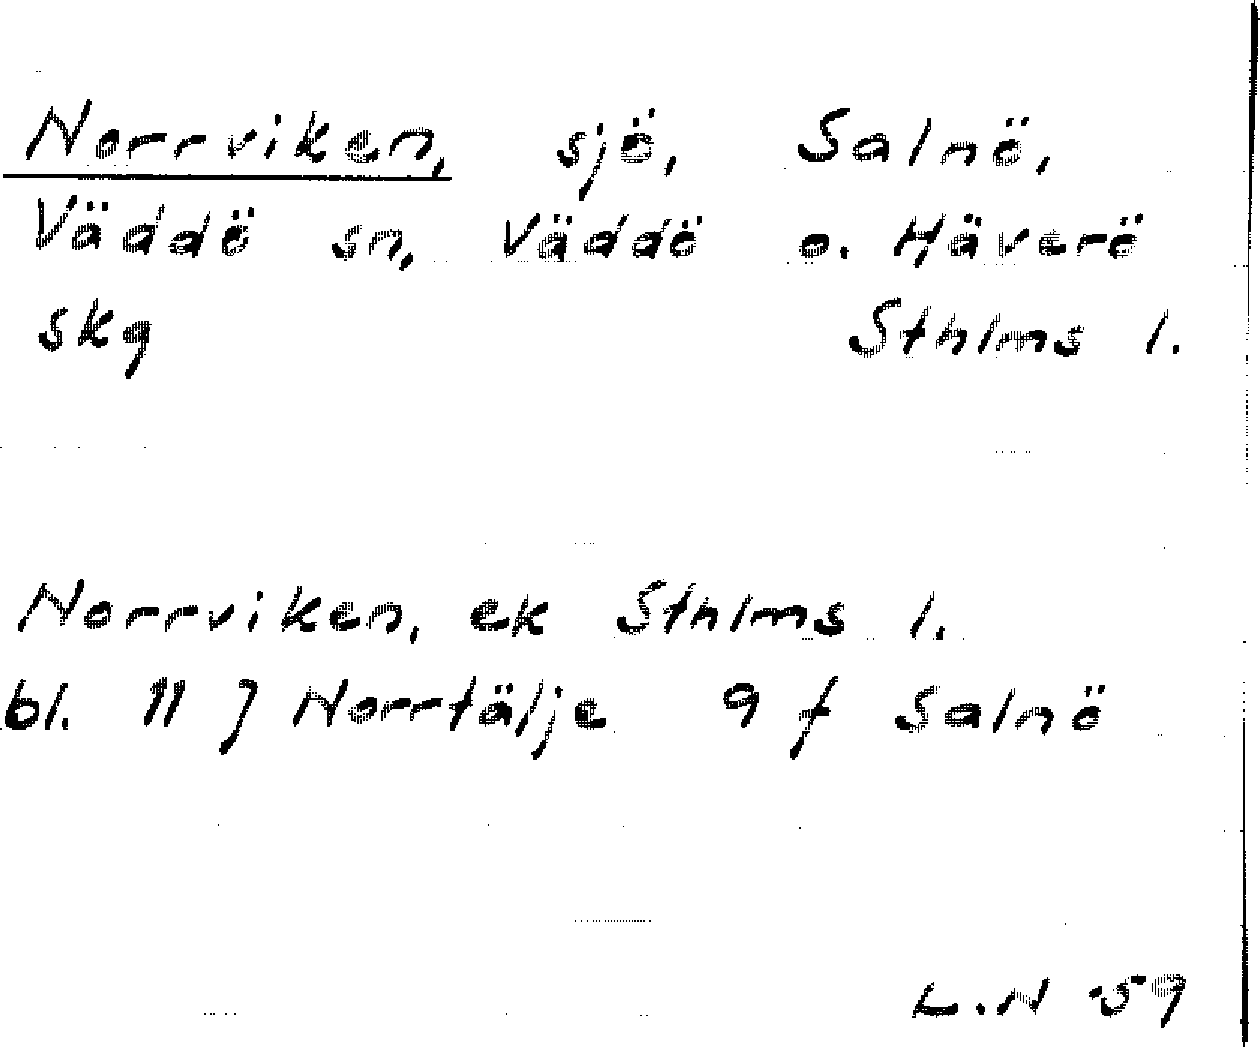 Norrviken, sjö, Salnö,
Väddö sn, Väddö o. Häverö
skg Sthlms l.
Norrviken, ek Sthlms l.
bl. 11 J Norrtälje 9 f Salnö
L.N -59